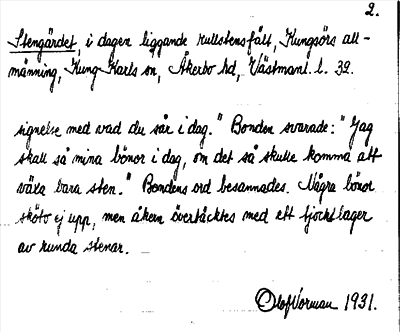 2.
Stengärdet, i dagen liggande rullstensfält, Kungsörs all-
männing, Kung-Karls sn, Åkerbo hd, Västmanl. l. 32.
signelse med vad du sår i dag." Bonden svarade: "Jag
skall så mina bönor i dag, om det så skulle komma att
växa bara sten." Bondens ord besannades. Några bönor
sköto ej upp, men åkern övertäcktes med ett tjockt lager
av runda stenar.
Olof Norman 1931.